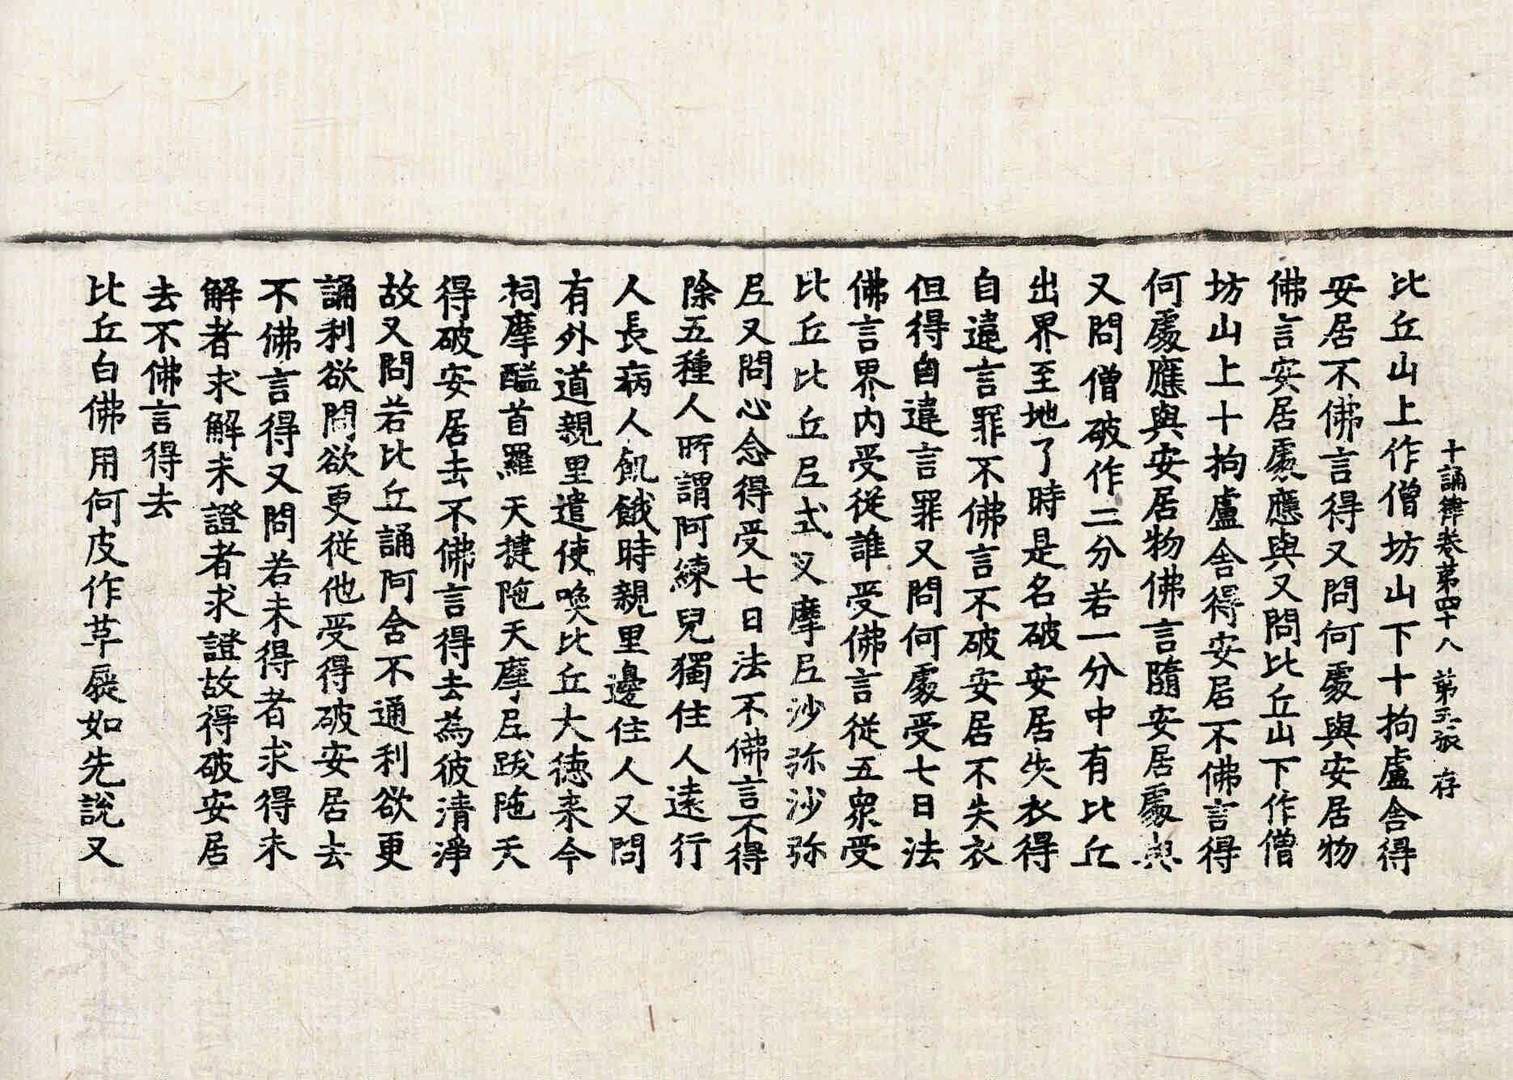 十誦律卷第四十八 第五張 存
比丘山上作僧坊山下十拘盧舍得
安居不佛言得又問何處與安居物
佛言安居處應與又問比丘山下作僧
坊山上十拘盧舍得安居不佛言得
何處應與安居物佛言隨安居處與
又問僧破作二分若一分中有比丘
出界至地了時是名破安居失衣得
自違言罪不佛言不破安居不失衣
但得自違言罪又問何處受七日法
佛言界內受從誰受佛言從五衆受
比丘比丘尼式叉摩尼沙弥沙弥
尼又問心念得受七日法不佛言不得
除五種人所謂阿練兒獨住人遠行
人長病人飢餓時親里邊住人又問
有外道親里遣使喚比丘大德来今
祠摩醯首羅天揵陁天摩尼跋陁天
得破安居去不佛言得去為彼清淨
故又問若比丘誦阿含不通利欲更
誦利欲問欲更從他受得破安居去
不佛言得又問若未得者求得未
解者求解未證者求證故得破安居
去不佛言得去
比丘白佛用何皮作草屣如先說又